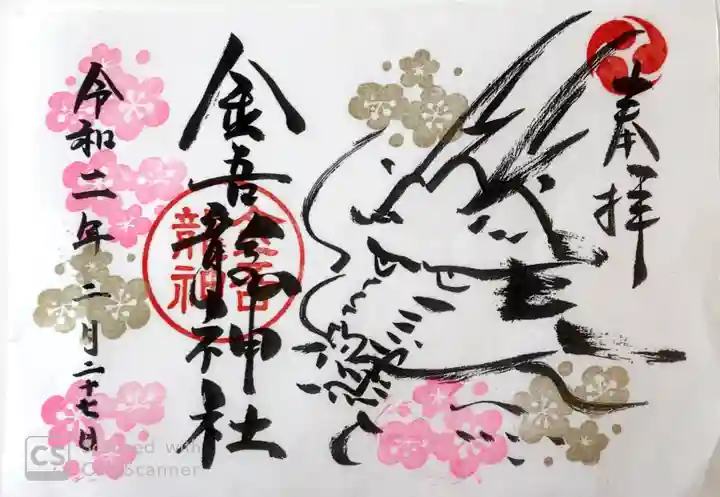 奉拝
金吾龍神社
金吾龍神
令和二年二月二十七日
CS Scanned with
CamScanner